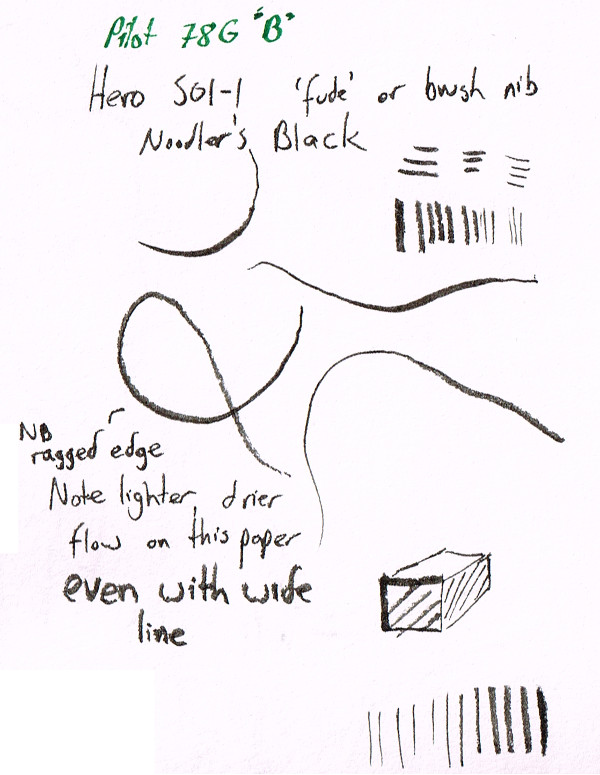 Pilot 78G "B"
Hero 501-1 'fude' or brush nib
Noodler's Black
NB
ragged edge
Note lighter, drier
flow on this paper
even with wide
line